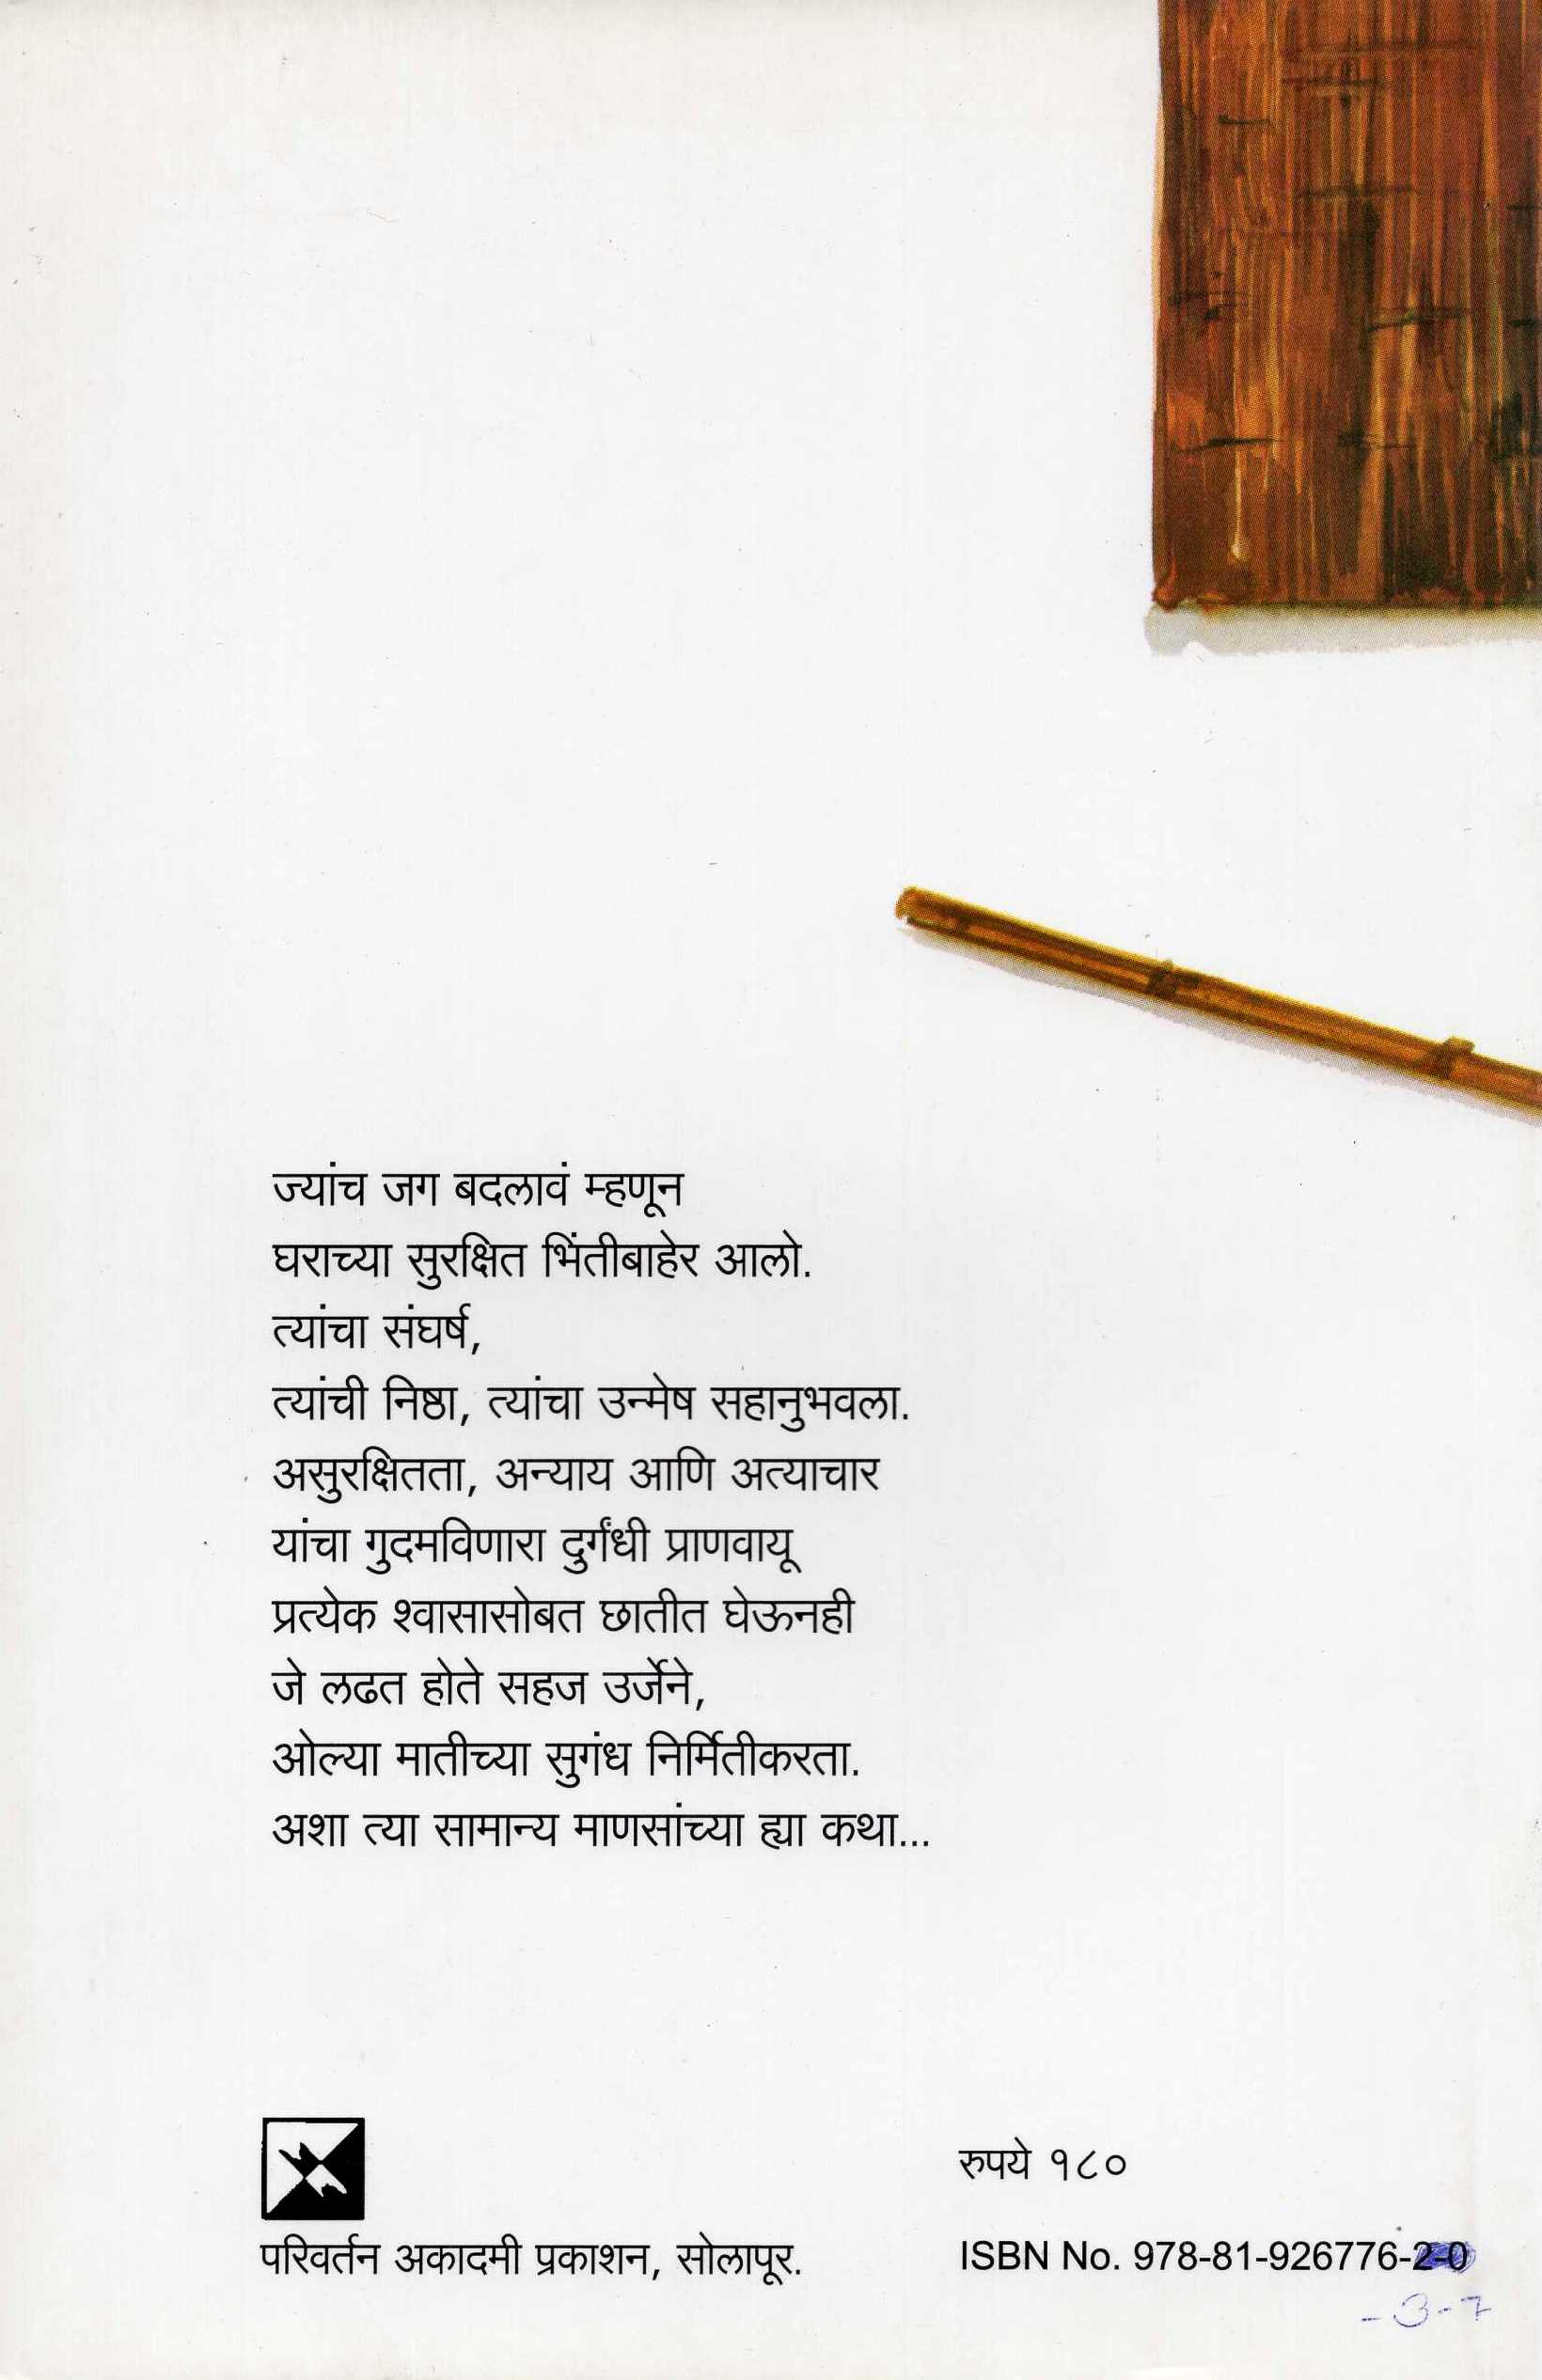 ज्यांच जग बदलावं म्हणून
घराच्या सुरक्षित भिंतीबाहेर आलो.
त्यांचा संघर्ष,
त्यांची निष्ठा, त्यांचा उन्मेष सहानुभवला.
असुरक्षितता, अन्याय आणि अत्याचार
यांचा गुदमविणारा दुर्गंधी प्राणवायू
प्रत्येक श्वासासोबत छातीत घेऊनही
जे लढत होते सहज उर्जेने,
ओल्या मातीच्या सुगंध निर्मितीकरता.
अशा त्या सामान्य माणसांच्या ह्या कथा...
रुपये १८०
परिवर्तन अकादमी प्रकाशन, सोलापूर.
ISBN No. 978-81-926776-2-0
-3-7